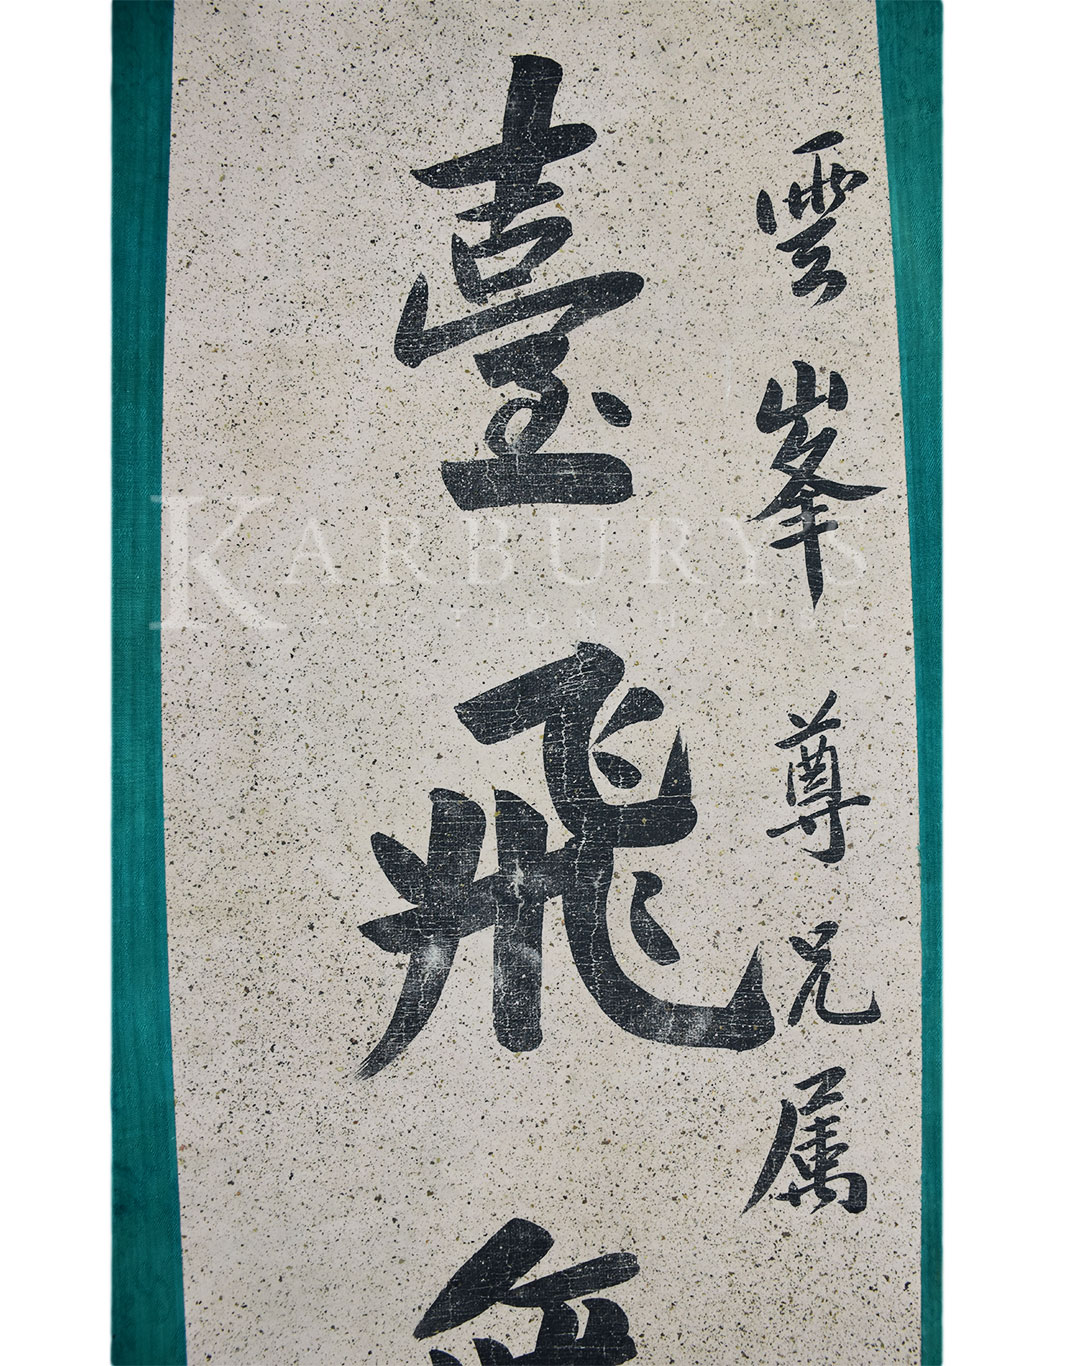 雲峯尊兄属
臺飛
KARBURY'S
AUCTION HOUSE